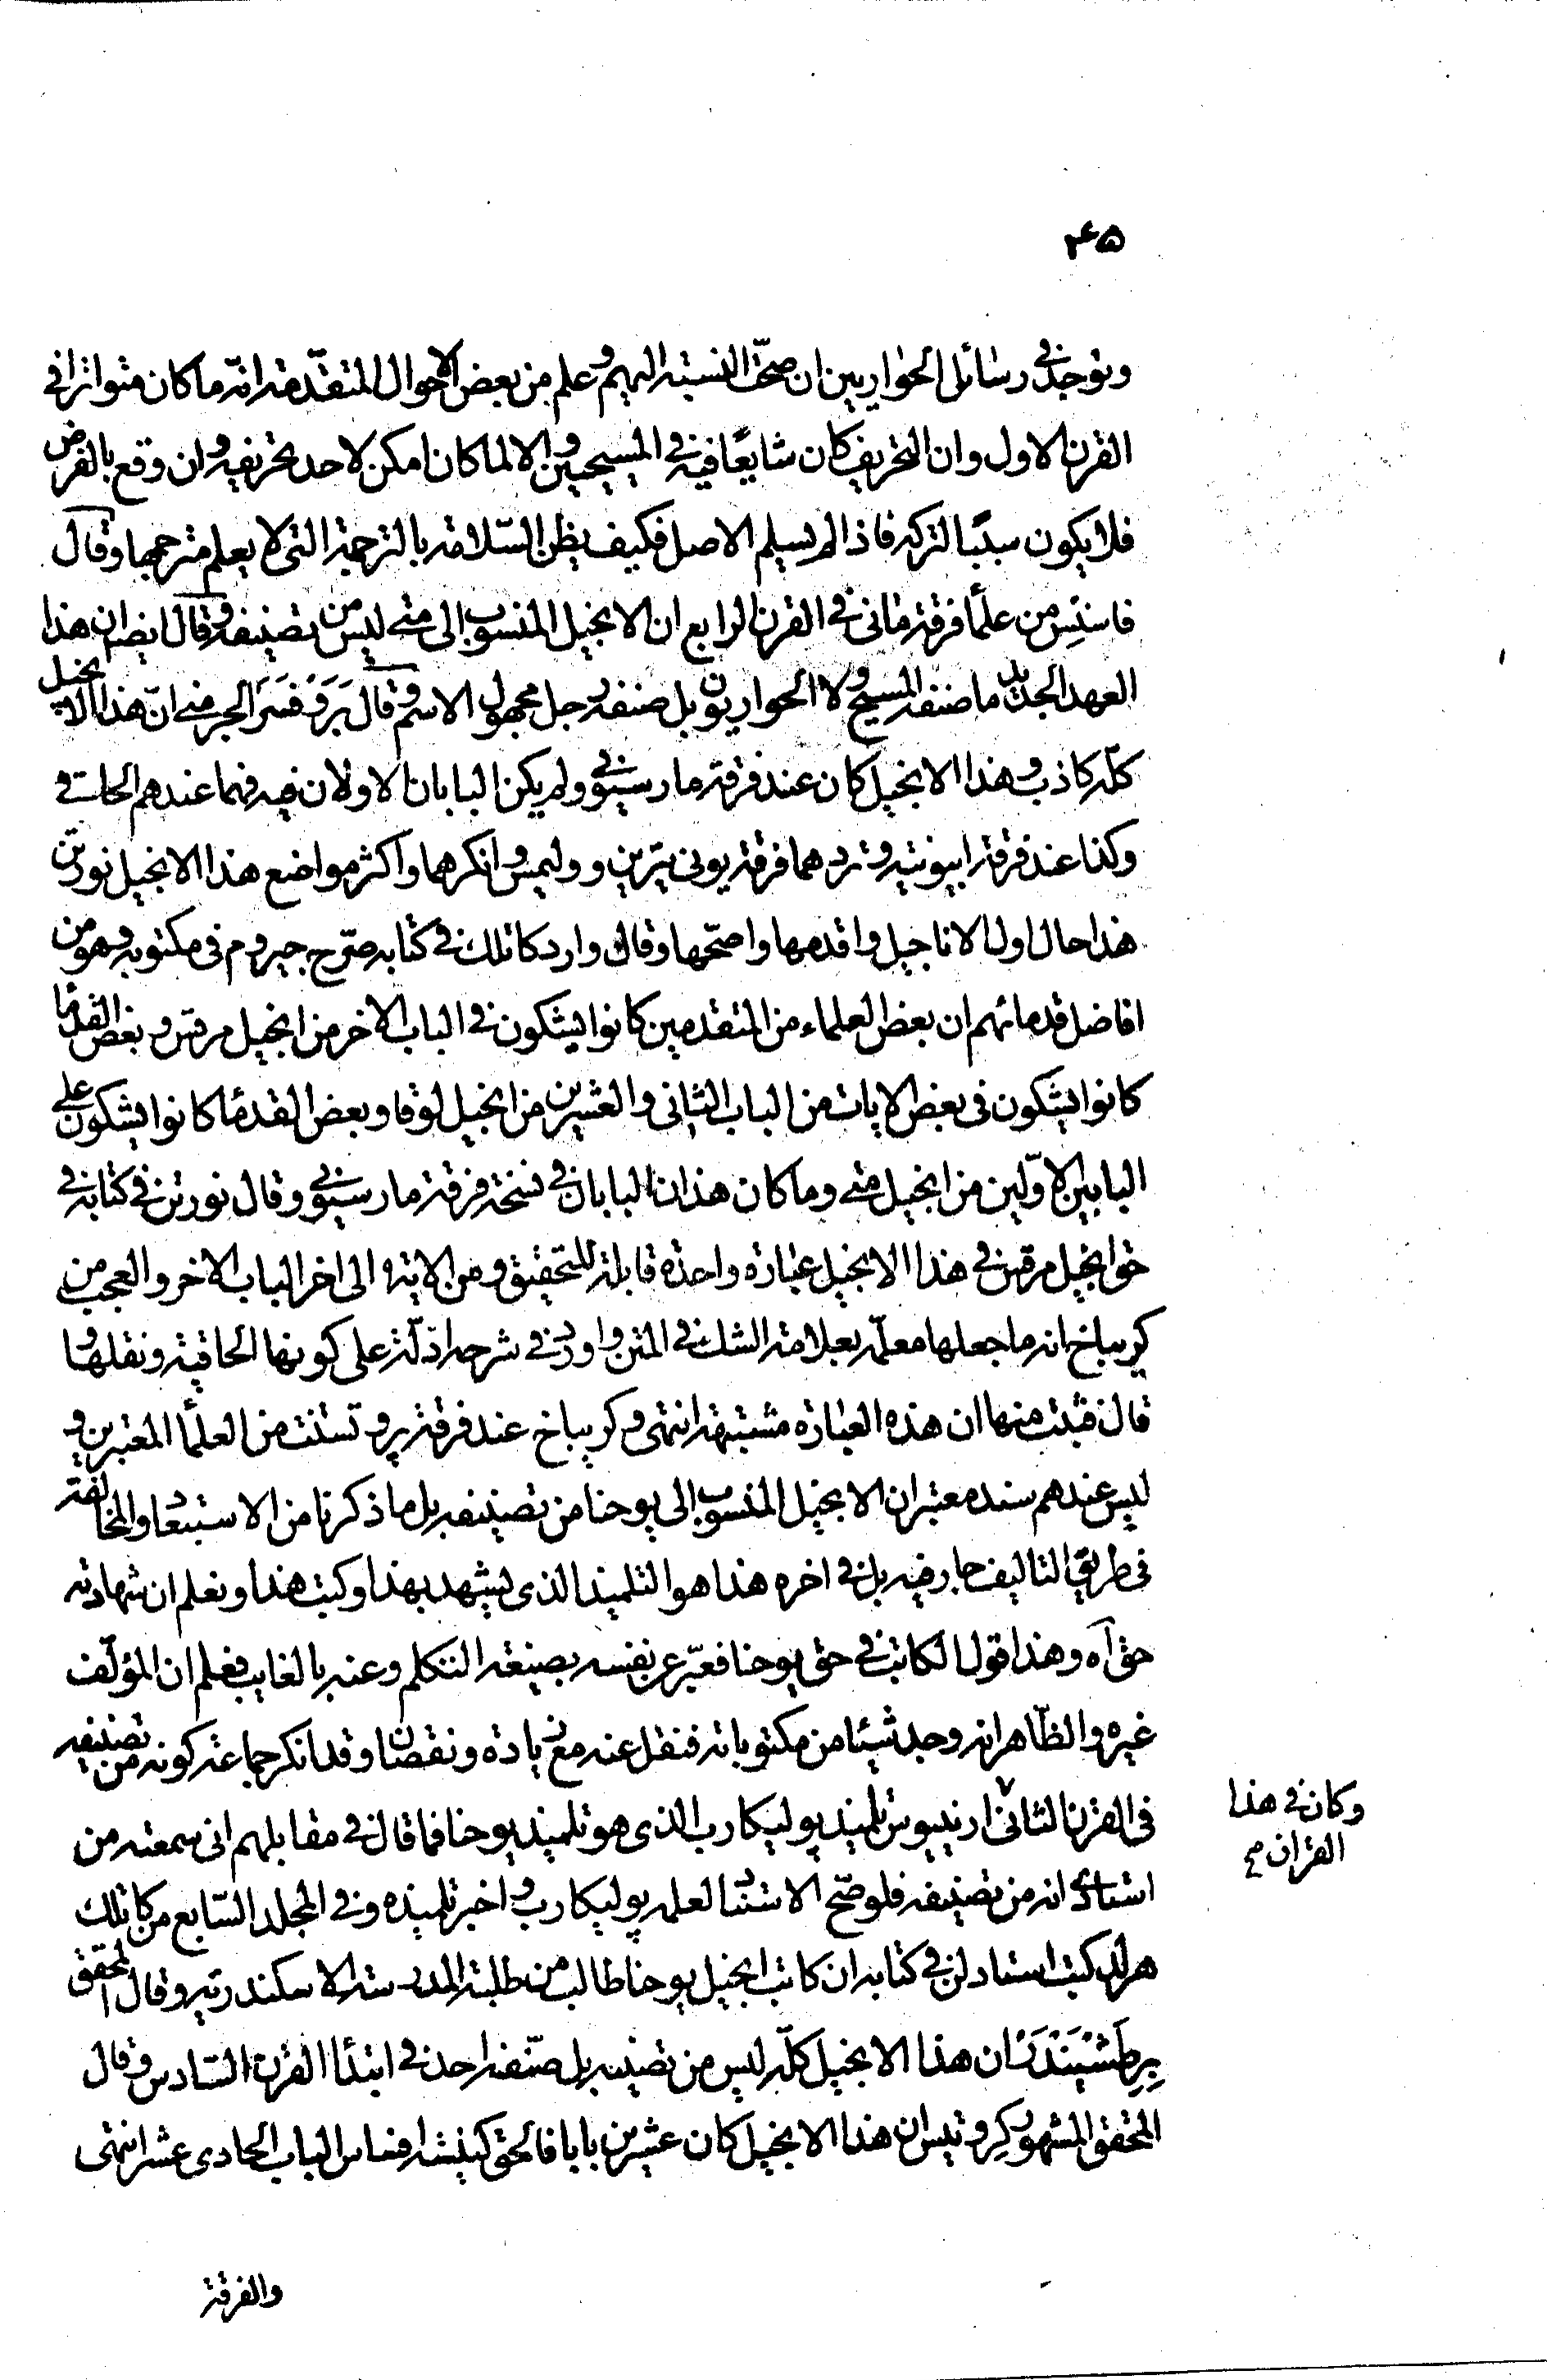 ٢٤٥
وتوجد في رسائل الحواريين ان صحّت النسبة اليهم وعلم من بعض الاحوال المتقدّمة انه ما كان متواترا في
القرن الاول وان التحريف كان شايعًا فيه في المسيحيين والا لما كان امكن لاحد تحريفه وان وقع بالفرض
فلا يكون سببًا لتركه فاذا لم يسلم الاصل فكيف يظن السّلامة بالترجمة التى لا يعلم مترجمها وقال
فاستس من علمأ فرقة مانى فى القرن الرابع ان الانجيل المنسوب الى متى ليس من تصنيفه وقال ايضا ان هذا
العهد الجديد ما صنفه المسيح ولا الحواريون بل صنفه رجل مجهول الاسم وقال بَرَوفَسَر الجرمنى ان هذا الانجيل
كلّه كاذب وهذا الانجيل كان عند فرقة مارسيونى ولم يكن البابان الاولان فيه فهما عندهم الحاقى
وكذا عند فرقة ابيونيه وتردهما فرقة يونى تيرين ووليمس وانكرهما واكثر مواضع هذا الانجيل نورتن
هذا حال اول الاناجيل واقدمها واصحّها وقال وارد كاتلك فى كتابه صرّح جيروم فى مكتوبه وهو من
افاضل قدمائهم ان بعض العلماء من المتقدمين كانوا يشكون فى الباب الاخر من انجيل مرقس وبعض القدمأ
كانوا يشكون فى بعض الايات من الباب الثانى والعشرين من انجيل لوقا وبعض القدمأ كانوا يشكون على
البابين الاوّلين من انجيل متى وما كان هذان البابان فى نسخة فرقة مارسيونى وقال نورتن فى كتابه فى
حق انجيل مرقس فى هذا الانجيل عبارة واحدة قابلة للتحقيق ومن الاية ٩ الى اخر الباب الاخر والعجب من
كريباخ انه ما جعلها معلّمة بعلامة الشك فى المتن واورد فى شرحه ادلّة على كونها الحاقية ونقلها و
قال فثبت منها ان هذه العبارة مشتبهة انتهى وكريباخ عند فرقة پروتستنت من العلمأ المعتبرين و
ليس عندهم سند معتبر ان الانجيل المنسوب الى يوحنا من تصنيفه بل ما ذكرنا من الاستبعاد والمخالفة
فى طريق التاليف جار فيه بل فى اخره هذا هو التلميذ الذى يشهد بهذا وكتب هذا ونعلم ان شهادته
حق آه وهذا قول الكاتب فى حق يوحنا فعبّر عن نفسه بصيغة التكلم وعنه بالغايب فعلم ان المؤلّف
غيره والظاهر انه وجد شيئا من مكتوباته فنقل عنه مع زيادة ونقصان وقد انكر جماعة كونه من تصنيفه
فى القرن الثانى ارنيوس تلميذ پوليكارب الذى هو تلميذ يوحنا فما قال فى مقابلهم انى سمعته من
وكان فى هذا
القران صح
استادى انه من تصنيفه فلو صحّ الاسناد لعلمه پوليكارب واخبر تلميذه وفى المجلد السّابع من كاتلك
هرلد كتب استادلن فى كتابه ان كاتب انجيل يوحنا طالب من طلبة المدرسة الاسكندرية وقال المحقق
بِرِطَشنِيَندَر ان هذا الانجيل كلّه ليس من تصنيفه بل صنّفه احد فى ابتدأ القرن السّادس وقال
المحقق المشهور كروتيس ان هذا الانجيل كان عشرين بابا فالحق كنيسة افساس الباب الحادى عشر انتهى
والفرقة